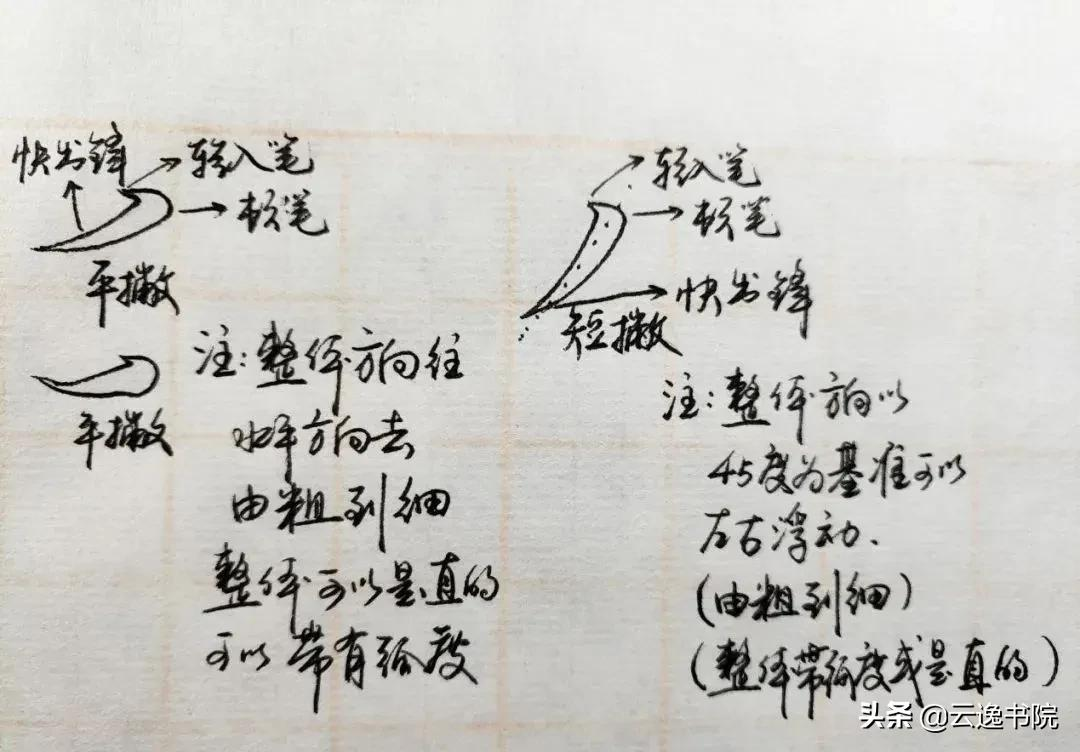 快出锋
轻入笔
顿笔
平撇
平撇
注:整体方向往
水平方向去
由粗到细
整体可以是直的
可以带有弧度
轻入笔
顿笔
快出锋
短撇
注:整体方向以
45度为基准可以
左右浮动.
(由粗到细)
(整体带弧度或是直的)
头条@云逸书院